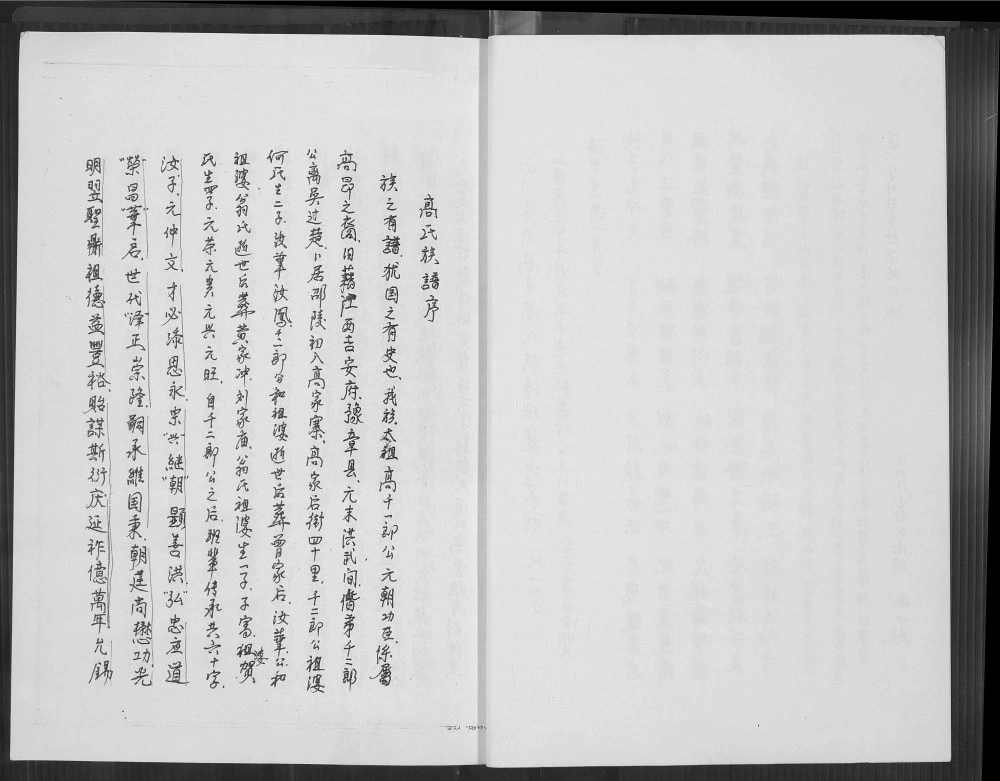 高氏族譜序
族之有譜，犹国之有史也，我族太祖高千一郎公，元朝功臣，係屬
高昂之裔，旧藉江西吉安府豫章县，元末洪武间，偕弟千二郎
公离吴过楚，卜居邵陵初入高家寨，高家后街四十里，千二郎公祖婆
何氏生二子，汝華汝鳳，千二郎公和祖婆逝世后葬曾家后，汝華公和
祖婆翁氏逝世后葬黄家冲，刘家庙，翁氏祖婆生一子，子富，祖婆賀
氏生四子，元荣元贵元兴元旺，自千二郎公之后，班輩传承共六十字，
汝子，元仲文，才必添思永，宗“兴”继“朝”顯善洪“弘”忠应道
“榮昌”華启，世代“泽”正崇隆，嗣承維国秉，朝廷尚懋功，光
明翌聖鼎祖德益豐裕，貽謀斯衍庆延祚億萬年，允錫